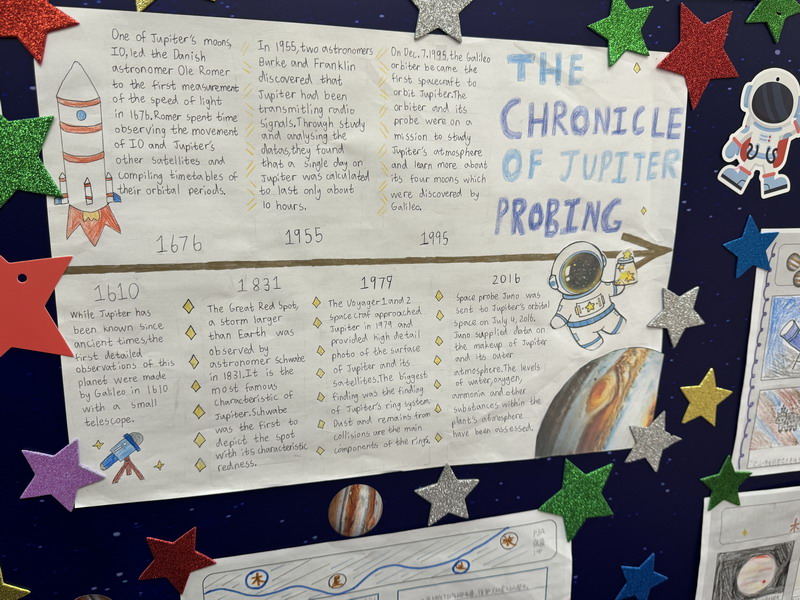 THE
CHRONICLE
OF JUPITER
PROBING
One of Jupiter's moons,
IO, led the Danish
astronomer Ole Romer
to the first measurement
of the speed of light
in 1676. Romer spent time
observing the movement
of IO and Jupiter's
other satellites and
compiling timetables of
their orbital periods.
1676
In 1955, two astronomers
Burke and Franklin
discovered that
Jupiter had been
transmitling radio
signals. Through study
and analysing the
datas, they found
that a single day on
Jupiter was calculated
to last only about
10 hours.
1955
On Dec. 7, 1995, the Galileo
orbiter became the
first spacecraft to
orbit Jupiter. The
orbiter and its
probe were on a
mission to study
Jupiter's atmosphere
and learn more about
its four moons which
were discovered by
Galileo.
1995
1610
While Jupiter has
been known since
ancient times, the
first detailed
observations of this
planet were made
by Galileo in 1610
with a small
telescope.
1831
The Great Red Spot,
a storm larger
than Earth was
observed by
astronomer Schwabe
in 1831. It is the
most famous
characteristic of
Jupiter. Schwabe
was the first to
depict the spot
with its characteristic
redness.
1979
The Voyager 1 and 2
spacecraf approached
Jupiter in 1979 and
provided high detail
photo of the surface
of Jupiter and its
satellites. The biggest
finding was the finding
of Jupiter's ring system.
Dust and remains from
collisions are the main
components of the rings.
2016
Space probe Juno was
sent to Jupiter's orbital
space on July 4, 2016.
Juno supplied data on
the makeup of Jupiter
and its outer
atmosphere. The levels
of water, oxygen,
ammonia and other
substances within the
plant's atmosphere
have been assessed.
木